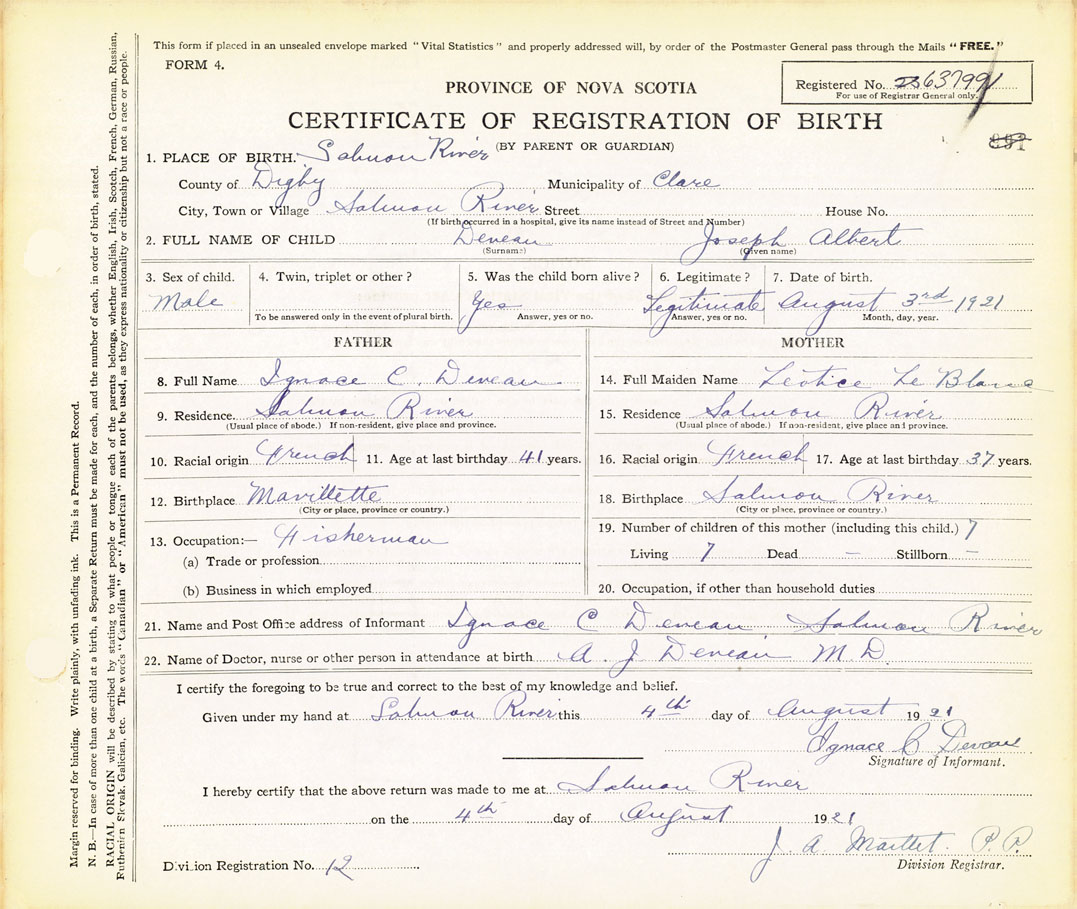 This form if placed in an unsealed envelope marked "Vital Statistics" and properly addressed will, by order of the Postmaster General pass through the Mails "FREE."
FORM 4.
Registered No. 637991
For use of Registrar General only.
PROVINCE OF NOVA SCOTIA
CERTIFICATE OF REGISTRATION OF BIRTH
(BY PARENT OR GUARDIAN)
891
1. PLACE OF BIRTH. Salmon River
County of Digby Municipality of Clare
City, Town or Village Salmon River Street House No.
(If birth occurred in a hospital, give its name instead of Street and Number)
2. FULL NAME OF CHILD Deveau Joseph Albert
(Surname) (Given name)
3. Sex of child. 4. Twin, triplet or other? 5. Was the child born alive? 6. Legitimate? 7. Date of birth.
Male Yes Legitimate August 3rd 1921
To be answered only in the event of plural birth. Answer, yes or no. Answer, yes or no. Month, day, year.
FATHER
8. Full Name Ignace C. Deveau
9. Residence. Salmon River
(Usual place of abode.) If non-resident, give place and province.
10. Racial origin French 11. Age at last birthday 41 years.
12. Birthplace Mavillette
(City or place, province or country.)
13. Occupation:— Fisherman
(a) Trade or profession
(b) Business in which employed
MOTHER
14. Full Maiden Name Leotice Le Blanc
15. Residence Salmon River
(Usual place of abode.) If non-resident, give place and province.
16. Racial origin French 17. Age at last birthday 37 years.
18. Birthplace Salmon River
(City or place, province or country.)
19. Number of children of this mother (including this child.) 7
Living 7 Dead – Stillborn –
20. Occupation, if other than household duties
21. Name and Post Office address of Informant Ignace C Deveau Salmon River
22. Name of Doctor, nurse or other person in attendance at birth A. J. Deveau M.D.
I certify the foregoing to be true and correct to the best of my knowledge and belief.
Given under my hand at Salmon River this 4th day of August 1921
Ignace C Deveau
Signature of Informant.
I hereby certify that the above return was made to me at Salmon River
on the 4th day of August 1921
J. A. P.P.
Division Registration No. 12 Division Registrar.
Margin reserved for binding. Write plainly, with unfading ink. This is a Permanent Record.
N. B.—In case of more than one child at a birth, a Separate Return must be made for each, and the number of each, in order of birth, stated.
RACIAL ORIGIN will be described by stating to what people or tongue each of the parents belongs, whether English, Irish, Scotch, French, German, Russian,
Ruthenian, Slovak, Galician, etc. The words "Canadian" or "American" must not be used, as they express nationality or citizenship but not a race or people.